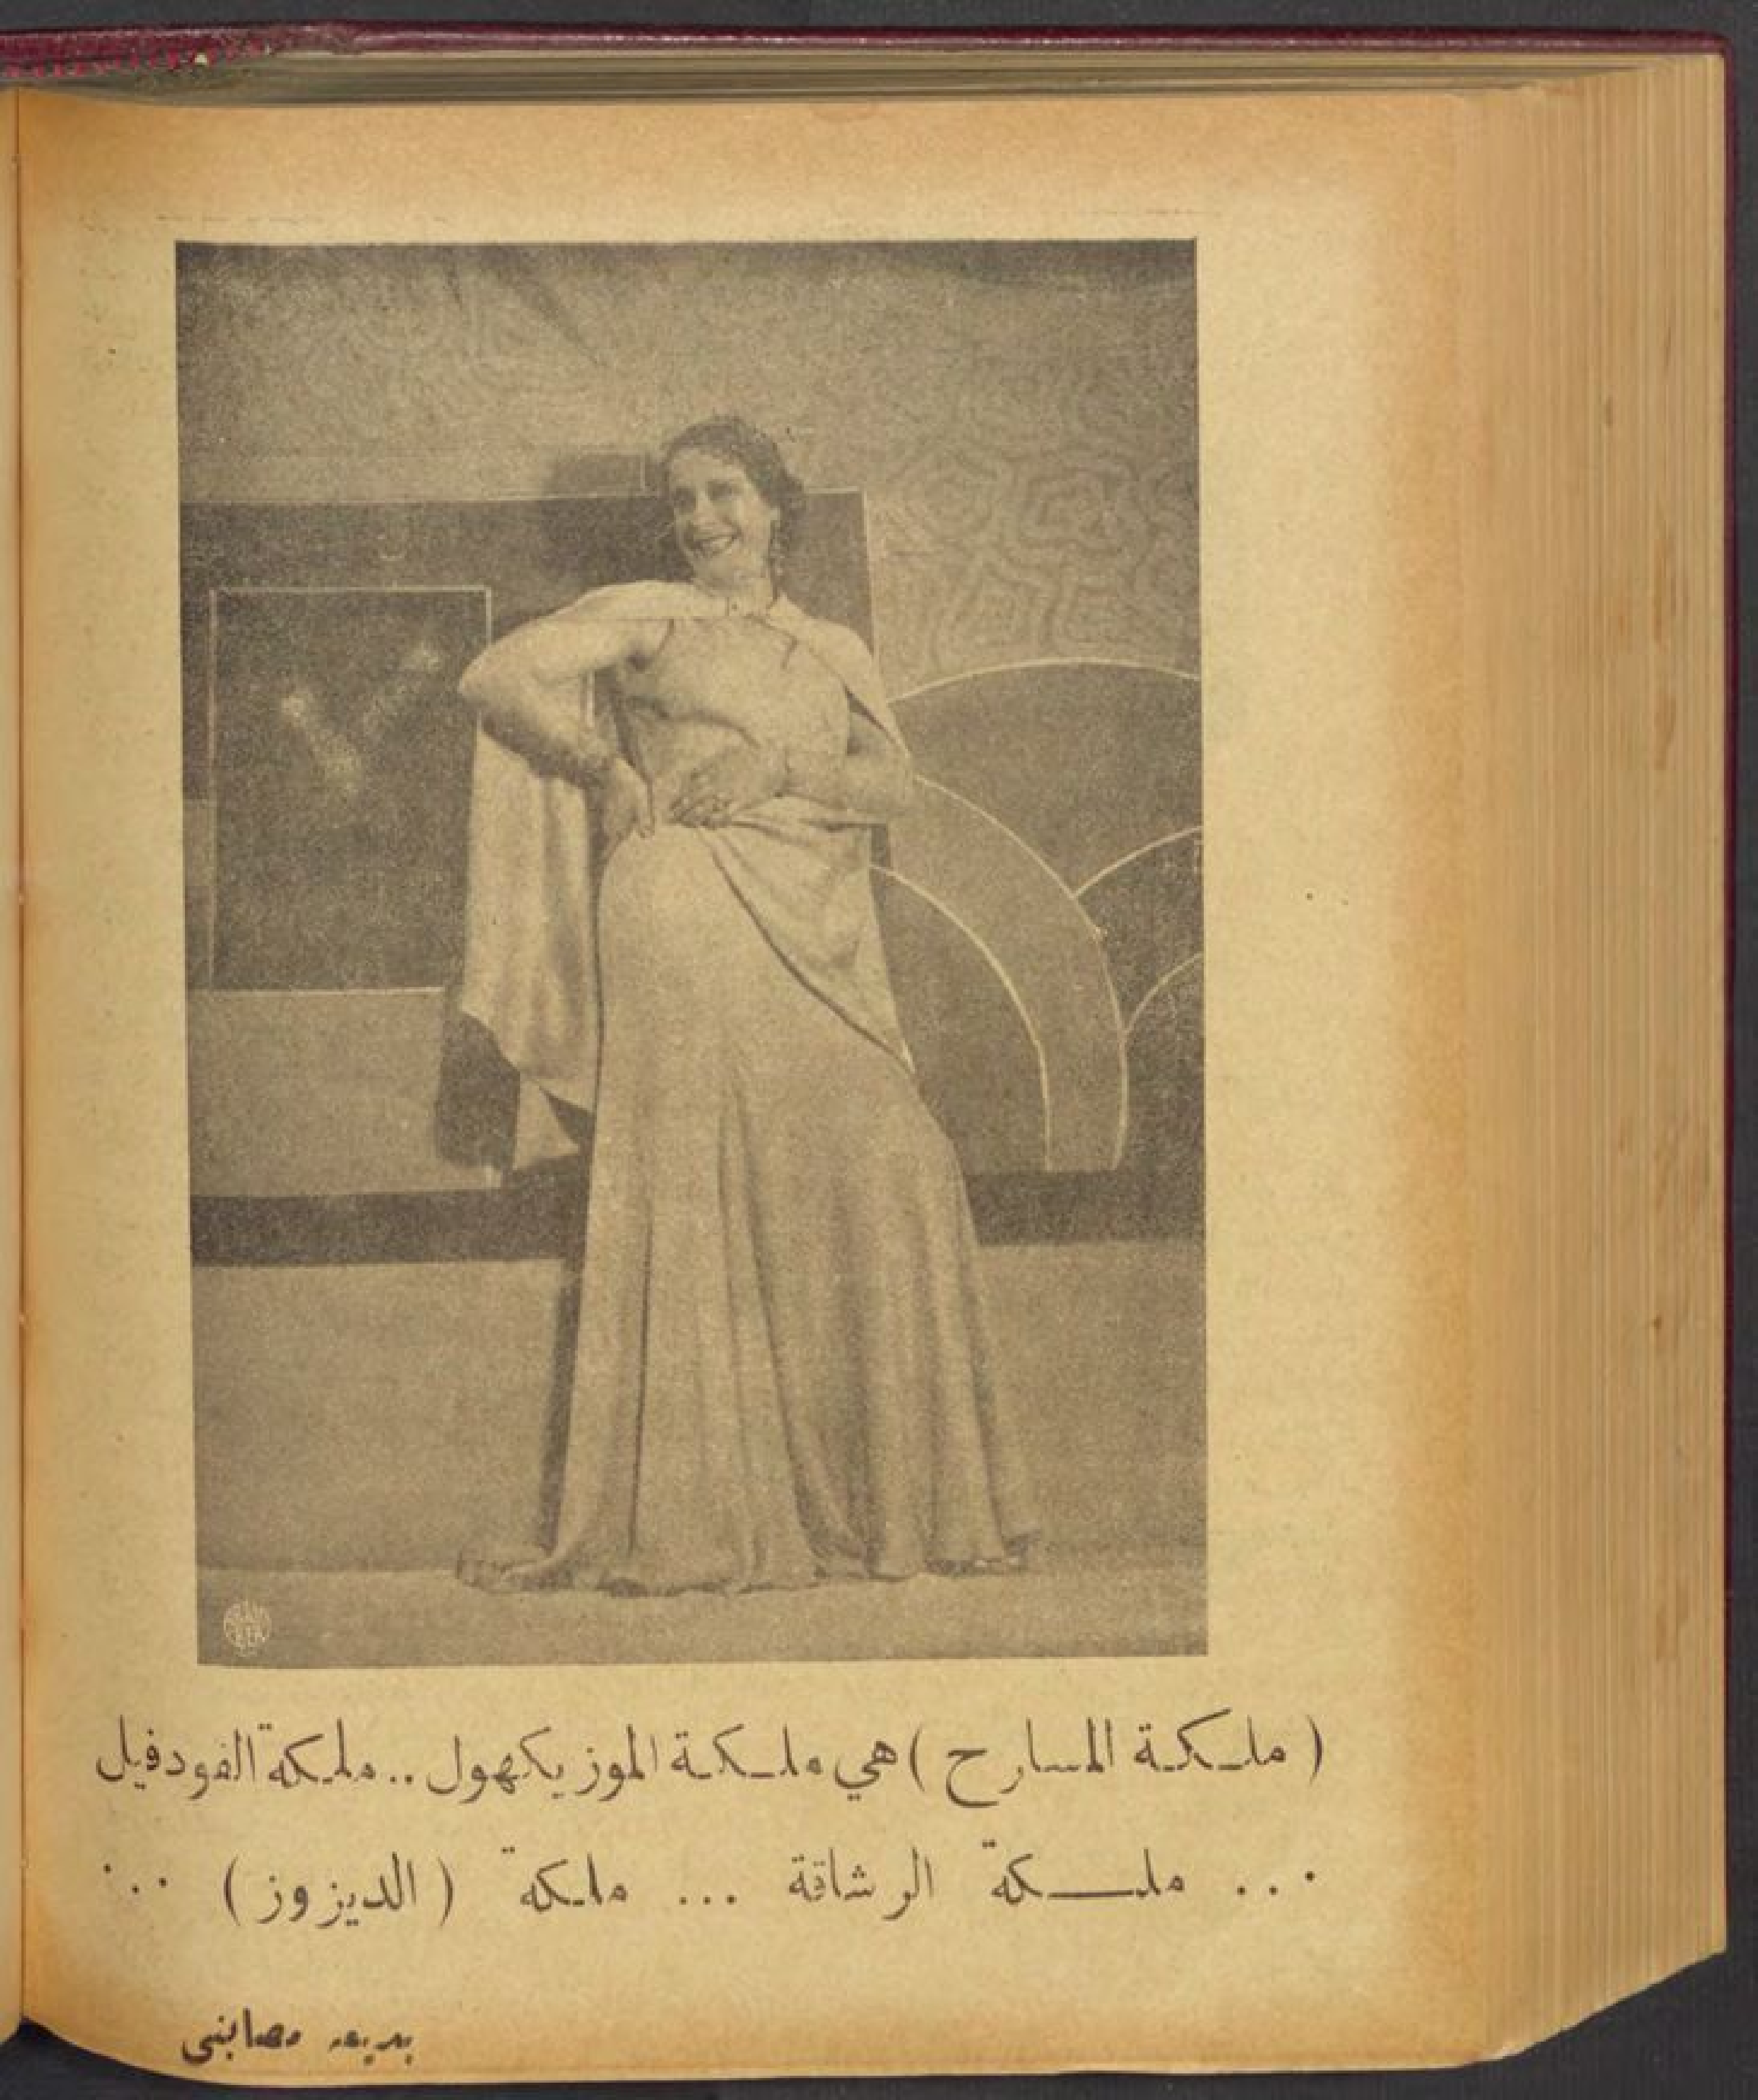 ( ملكة المسارح ) هي ملكة الموزيكهول .. ملكة الفودفيل
... ملكة الرشاقة ... ملكة ( الديزوز ) ...
بديعه مصابني